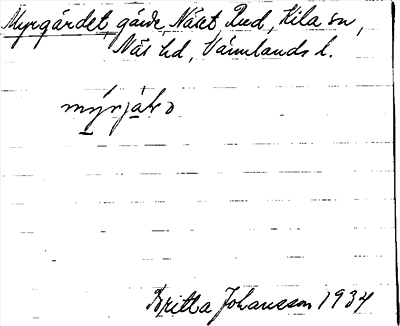 Myrgärdet, gärde, Näset, Rud, Kila sn,
Näs hd, Värmlands l.
Britta Johansson 1934